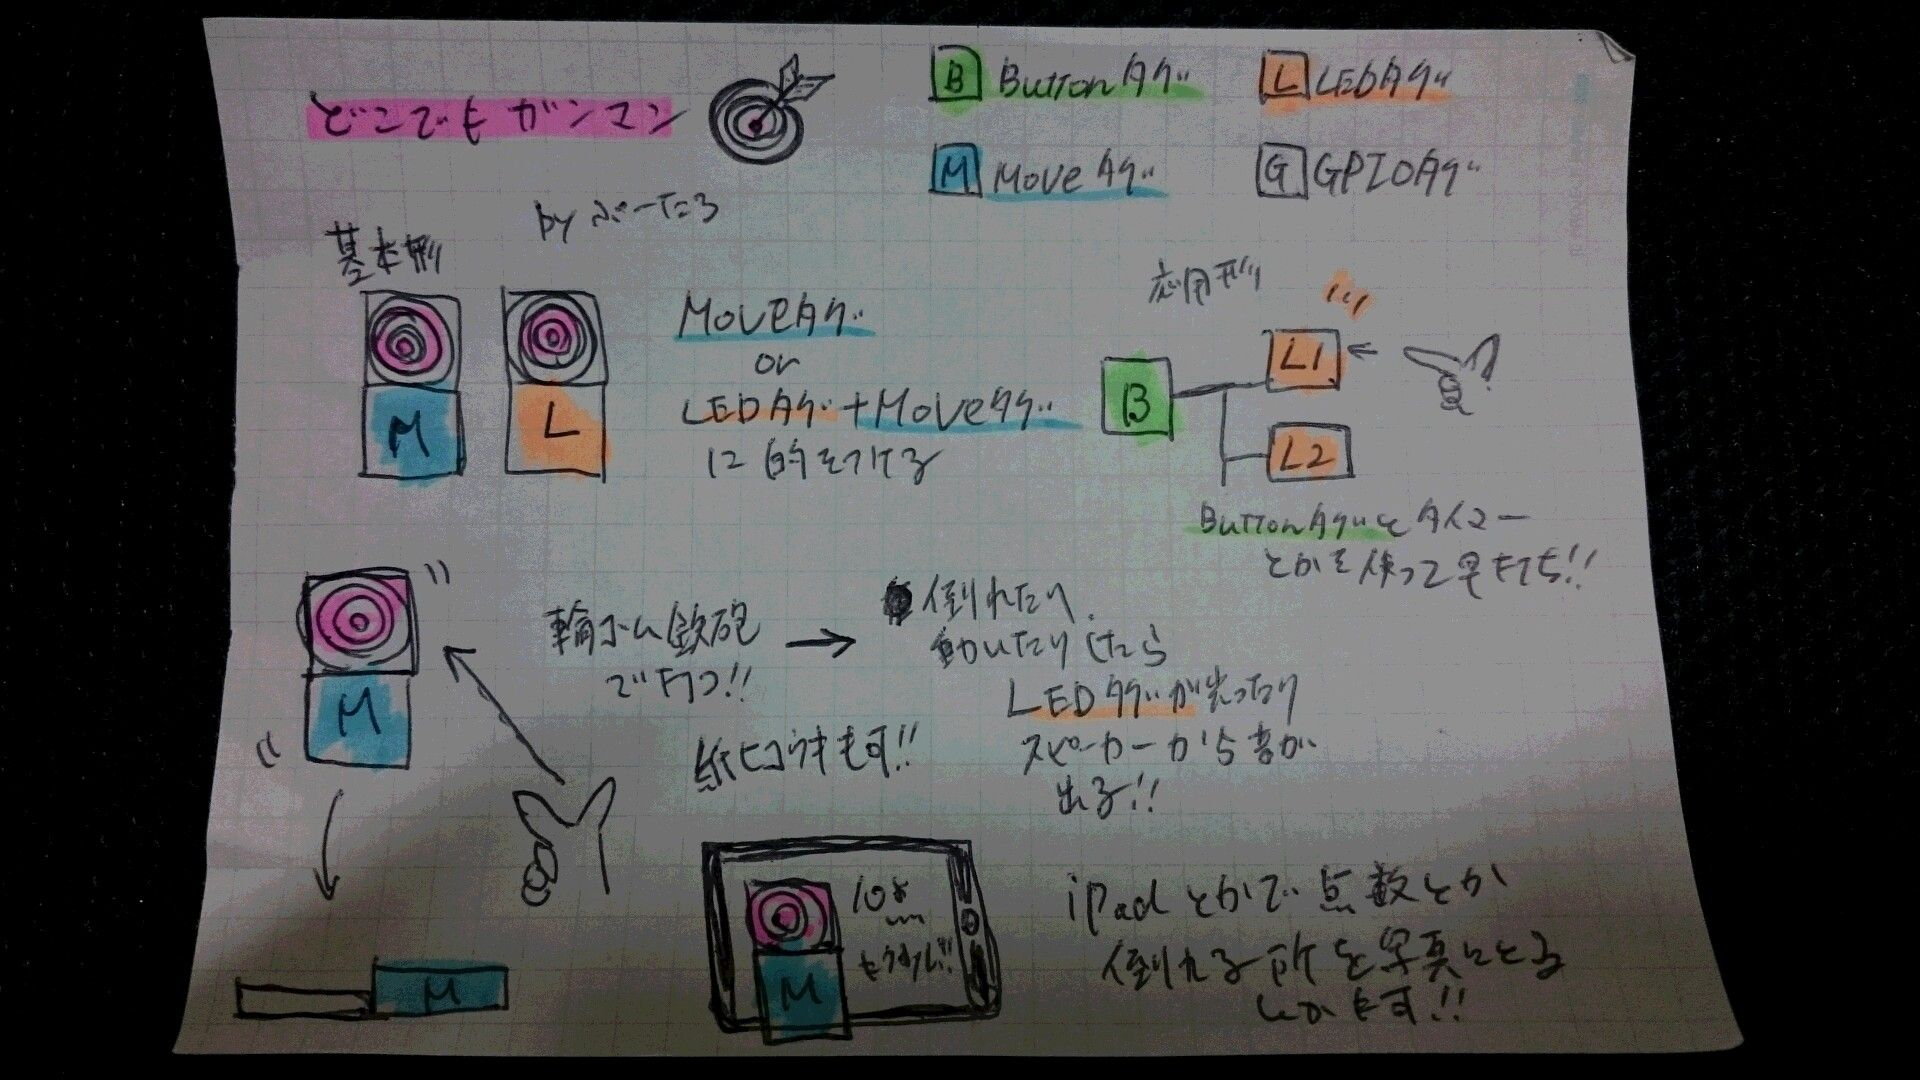 どこでもガンマン
by ぶーたろ
B Buttonタグ
L LEDタグ
M Moveタグ
G GPIOタグ
基本形
M
L
Moveタグ
or
LEDタグ+Moveタグ
に的をつける
応用形
B
L1
L2
Buttonタグとタイマー
とかを使って早打ち!!
M
輪ゴム鉄砲
でうつ!!
紙ヒコウキも可!!
倒れたり
動いたりしたら
LEDタグが光ったり
スピーカーから音が
出る!!
M
M
iPadとかで点数とか
倒れる所を写真にとる
のも可!!